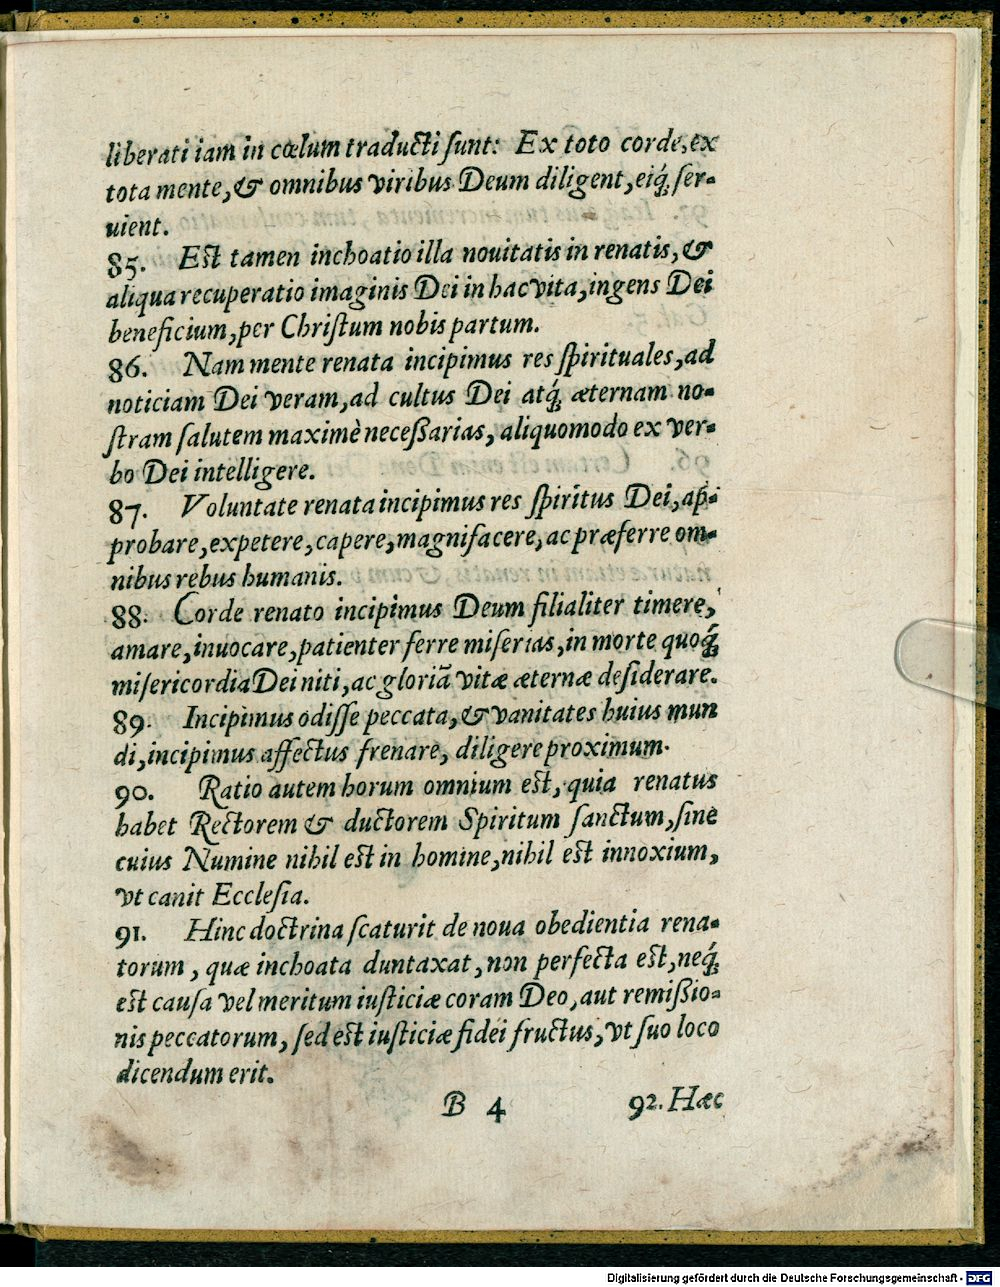 liberati iam in cœlum traducti ſunt: Ex toto corde, ex
tota mente, & omnibus viribus Deum diligent, eiq́; ſer-
uient.
85. Eſt tamen inchoatio illa nouitatis in renatis, &
aliqua recuperatio imaginis Dei in hac vita, ingens Dei
beneficium, per Chriſtum nobis partum.
86. Nam mente renata incipimus res ſpirituales, ad
noticiam Dei veram, ad cultus Dei atq́; æternam no-
ſtram ſalutem maximè neceßarias, aliquomodo ex ver-
bo Dei intelligere.
87. Voluntate renata incipimus res ſpiritus Dei, ap-
probare, expetere, capere, magnifacere, ac præferre om-
nibus rebus humanis.
88. Corde renato incipimus Deum filialiter timere,
amare, inuocare, patienter ferre miſerias, in morte quoq́;
miſericordia Dei niti, ac gloriã vitæ æternæ deſiderare.
89. Incipimus odiſſe peccata, & vanitates huius mun
di, incipimus affectus frenare, diligere proximum.
90. Ratio autem horum omnium eſt, quia renatus
habet Rectorem & ductorem Spiritum ſanctum, ſine
cuius Numine nihil eſt in homine, nihil eſt innoxium,
vt canit Eccleſia.
91. Hinc doctrina ſcaturit de noua obedientia rena-
torum, quæ inchoata duntaxat, non perfecta eſt, neq́;
eſt cauſa vel meritum iuſticiæ coram Deo, aut remißio-
nis peccatorum, ſed eſt iuſticiæ fidei fructus, vt ſuo loco
dicendum erit.
B 4 92. Hæc
Digitalisierung gefördert durch die Deutsche Forschungsgemeinschaft - DFG